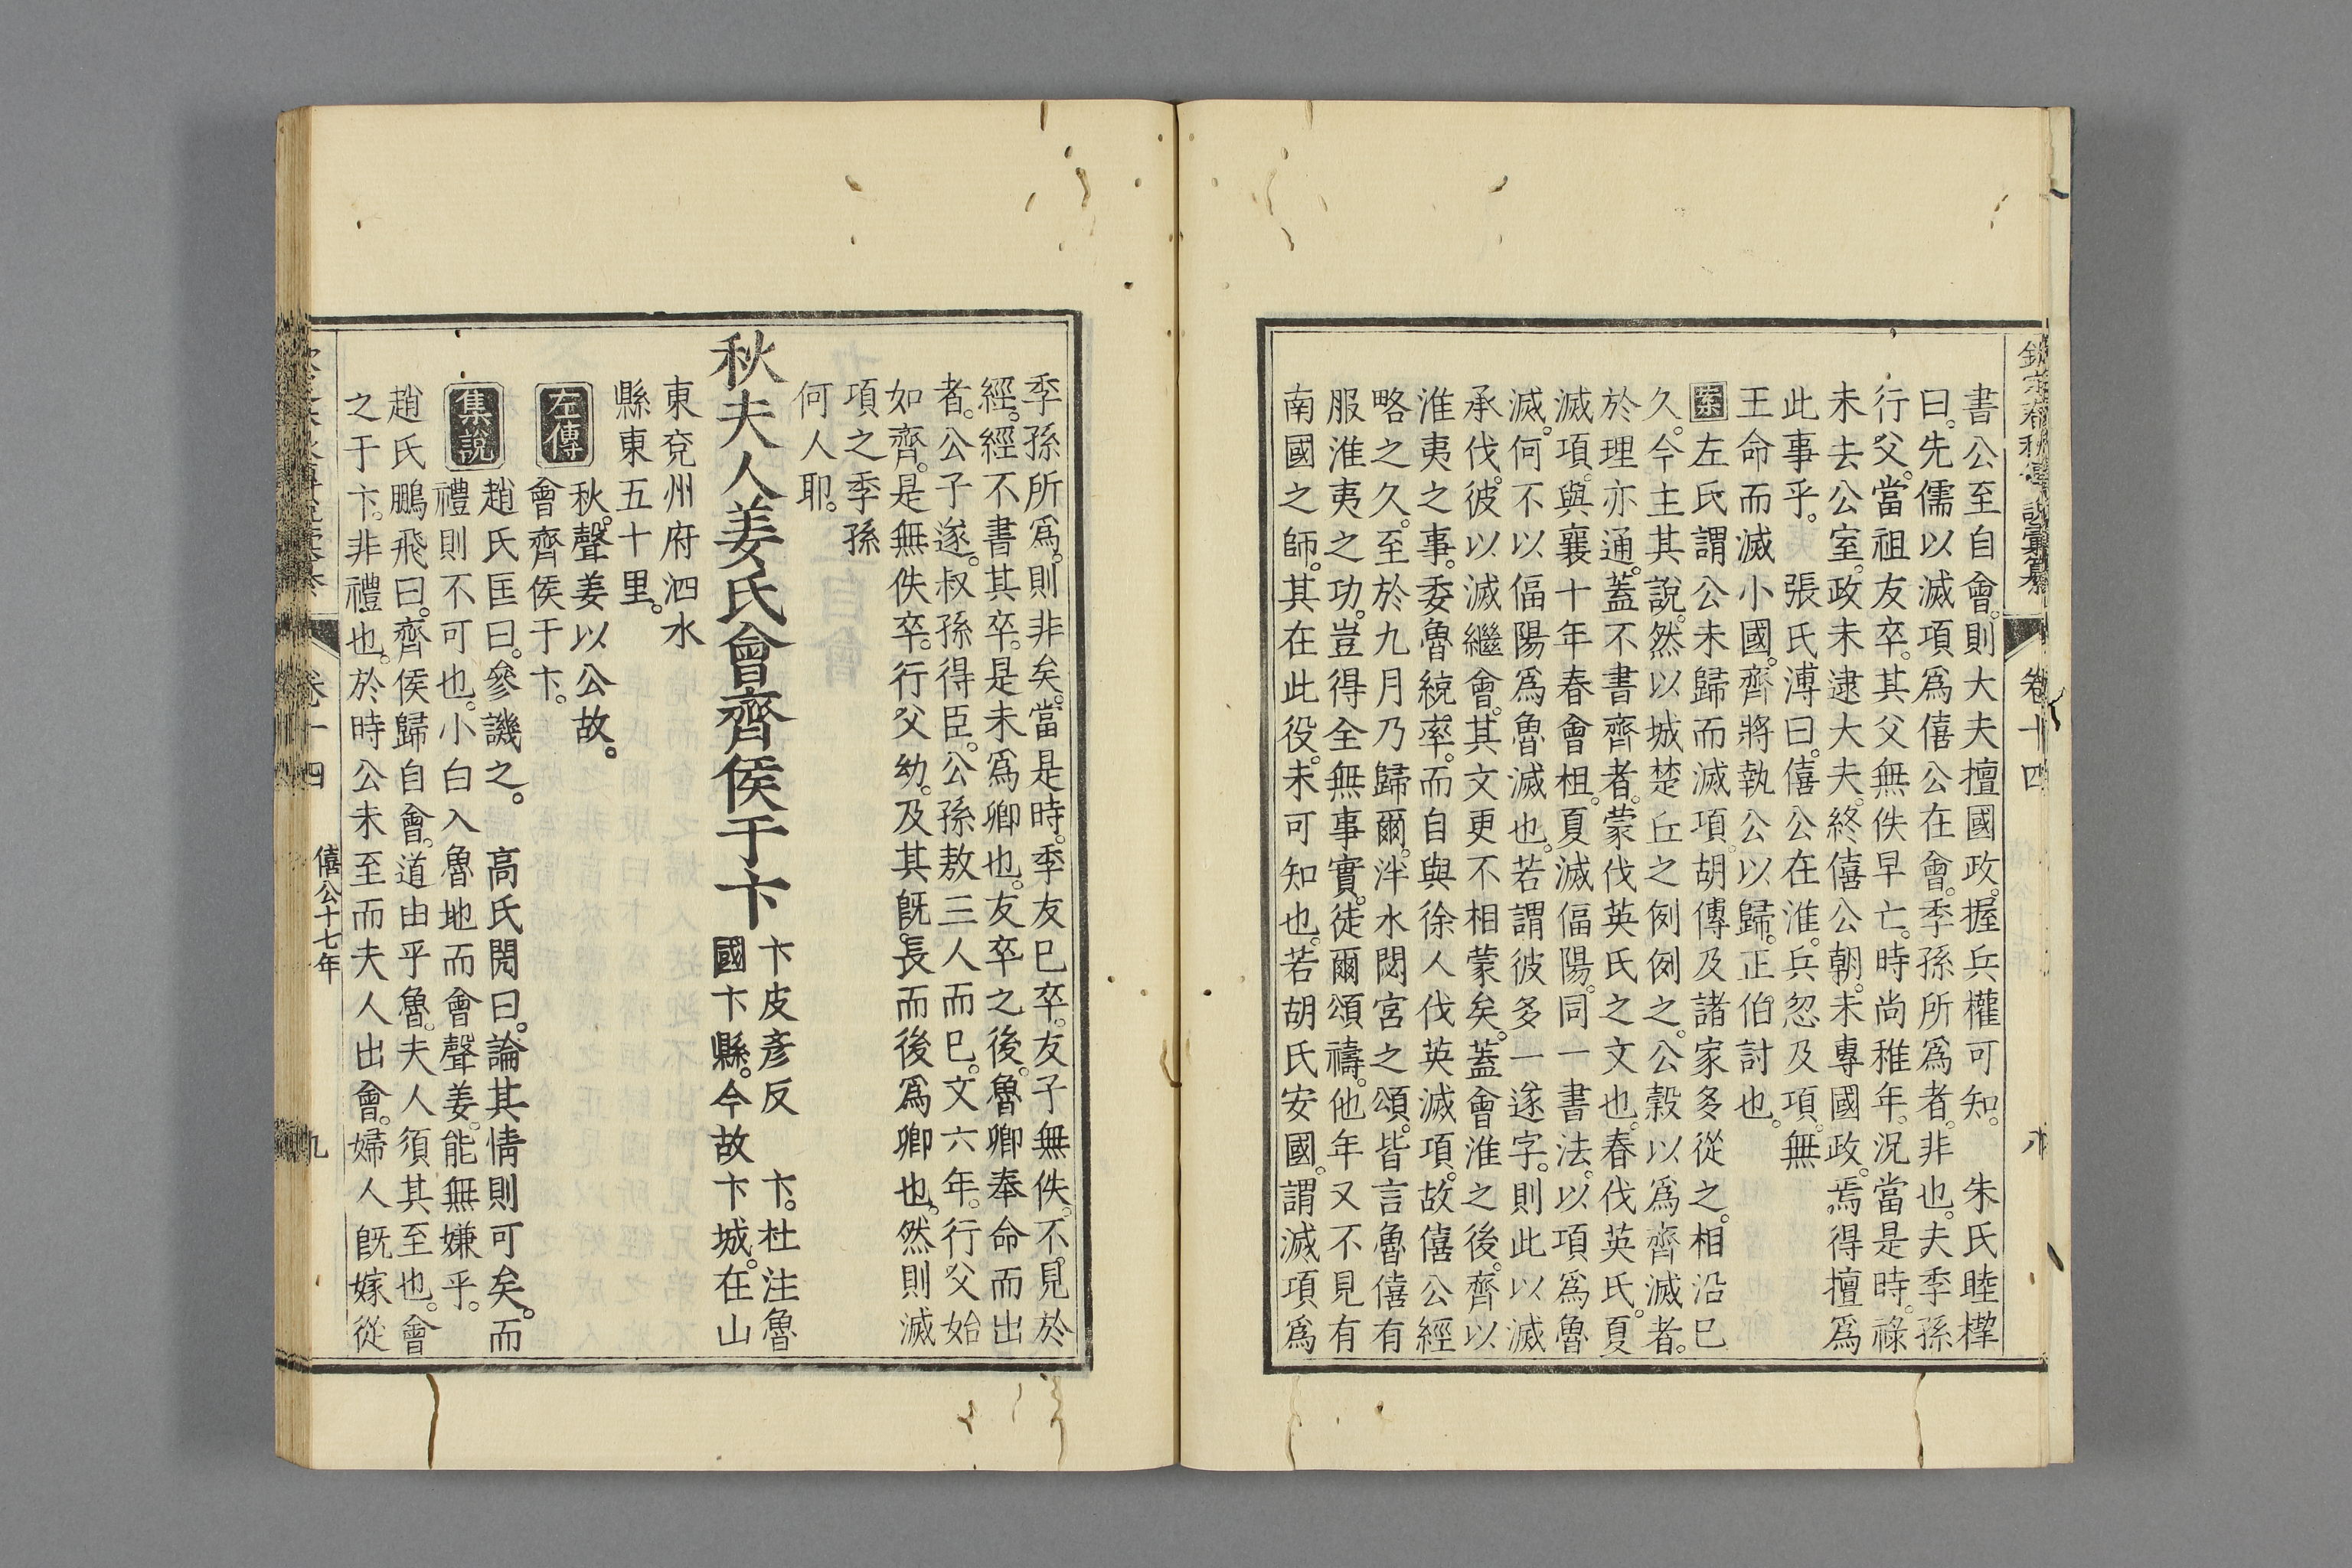 欽定春秋傳說彙纂 卷十四 八
書公至自會。則大夫擅國政。握兵權可知。 朱氏睦㮮
曰。先儒以滅項爲僖公在會。季孫所爲者。非也。夫季孫
行父。當祖友卒。其父無佚早亡。時尚稚年。況當是時。祿
未去公室。政未逮大夫。終僖公朝。未專國政。焉得擅爲
此事乎。 張氏溥曰。僖公在淮。兵忽及項。無
王命而滅小國。齊將執公以歸。正伯討也。
案左氏謂公未歸而滅項。胡傳及諸家多從之。相沿已
久。今主其說。然以城楚丘之例例之。公穀以爲齊滅者。
於理亦通。蓋不書齊者。蒙伐英氏之文也。春伐英氏。夏
滅項。與襄十年春會柤。夏滅偪陽。同一書法。以項爲魯
滅。何不以偪陽爲魯滅也。若謂彼多一遂字。則此以滅
承伐。彼以滅繼會。其文更不相蒙矣。蓋會淮之後。齊以
淮夷之事。委魯統率。而自與徐人伐英滅項。故僖公經
略之久。至於九月乃歸爾。泮水閟宮之頌。皆言魯僖有
服淮夷之功。豈得全無事實。徒爾頌禱。他年又不見有
南國之師。其在此役。未可知也。若胡氏安國。謂滅項爲
季孫所爲。則非矣。當是時。季友已卒。友子無佚。不見於
經。經不書其卒。是未爲卿也。友卒之後。魯卿奉命而出
者。公子遂。叔孫得臣。公孫敖三人而已。文六年。行父始
如齊。是無佚卒。行父幼。及其旣長而後爲卿也。然則滅
項之季孫
何人耶。
秋夫人姜氏會齊侯于卞 卞皮彥反 卞。杜注魯
國卞縣。今故卞城。在山
東兗州府泗水
縣東五十里。
左傳 秋。聲姜以公故。
會齊侯于卞。
集說 趙氏匡曰。參譏之。 高氏閌曰。論其情則可矣。而
禮則不可也。小白入魯地而會聲姜。能無嫌乎。
趙氏鵬飛曰。齊侯歸自會。道由乎魯。夫人須其至也。會
之于卞。非禮也。於時公未至而夫人出會。婦人旣嫁從
卷十四 僖公十七年 九